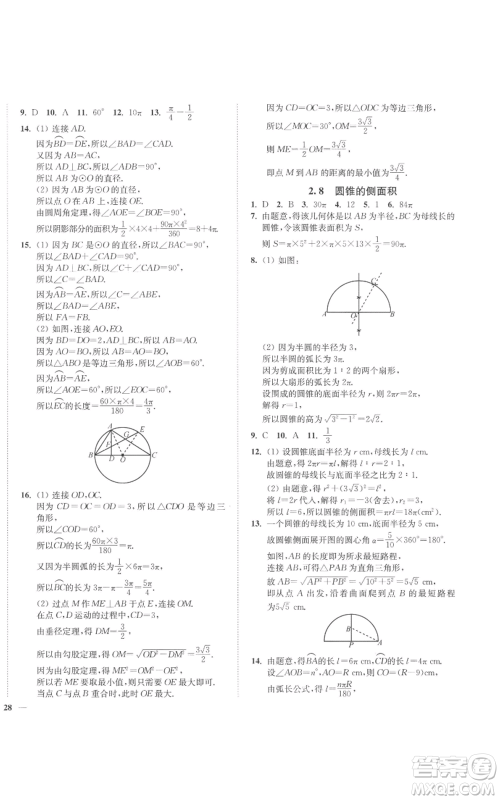 9. D 10. A 11. 60° 12. 10π 13. π/4 − 1/2
14. (1) 连接 AD.
因为BD⌢=DE⌢,所以∠BAD=∠EAD.
又因为 AB=AC,
所以 AD⊥BC,所以∠ADB=90°,
所以 AB 为⊙O 的直径.
(2) 因为 AB 为⊙O 的直径,
所以点 O 在 AB 上.
由圆周角定理,得∠AOE=2∠ABE=90°,
所以阴影部分的面积为1/2×4×4+90π×4²/360=8+4π.
15. (1) 因为 BC 是⊙O 的直径,所以∠BAC=90°.
因为 AD⊥BC,所以∠ADB=90°,
所以∠BAD=∠C.
因为AB⌢=AE⌢,所以∠C=∠ABE,
所以∠BAD=∠ABE,
所以 FA=FB.
(2) 如图,连接 AO,EO.
因为 BD=DO=2,AD⊥BO,所以 AB=AO.
因为 AO=BO,所以 AB=AO=BO,
所以△ABO 是等边三角形,所以∠AOB=60°.
因为AB⌢=AE⌢,
所以∠AOE=60°,所以∠EOC=60°,
所以EC⌢的长度=60×π×4/180=4π/3.
A
E
F
B
D
O
C
16. (1) 连接 OD,OC.
因为 CD=OC=OD=3,所以△CDO 是等边三角形,
所以∠COD=60°,
所以CD⌢的长=60π×3/180=π.
又因为半圆弧的长度为1/2×6π=3π,
所以BC⌢+AD⌢=3π−π=2π.
(2) 过点 M 作 ME⊥AB 于点 E,连接 OM.
在点 C,D 运动的过程中,CD=3,
由垂径定理,得 DM=3/2,
所以由勾股定理,得 OM=√(OD²−DM²)=3√3/2.
因为由勾股定理,得 ME²=OM²−OE²,
所以若要 ME 取得最大值,则使 OE 最小即可.
当点 O 与点 E 重合时,ME 最大,此时 ME=OM.
因为 CD=OC=3,所以△ODC 为等边三角形,
所以∠MCO=60°,所以 OM=3√3/2,
所以 ME=OM=3√3/2,
即点 M 到 AB 的距离的最小值为3√3/2.
2.8 圆锥的侧面积
1. D 2. B 3. 2 4. 5 5. 1 6. 84π
7. 由题意,得该几何体是以 AB 为直径,BC 为母线长的
圆锥,令该圆锥表面积为 S,
则 S=π×5²+2π×5×13×1/2=90π.
8. (1) 如图:
C
A
O
B
(2) 因为半圆的半径为 2,
所以半圆的弧长为 2π.
因为剪成面积相等的两个扇形,
所以大扇形的弧长为 2π.
设围成的圆锥的底面半径为 r,则 2πr=2π,
解得 r=1,
所以圆锥的高为 √(3²−1²)=2√2.
9. C 10. A 11. 1/3
12. (1) 设圆锥底面半径为 r cm,母线长为 l cm.
由题意,得 2πr=πl,所以 l=2r,
故圆锥的母线长与底面半径之比为 2:1.
(2) 由题意,得 r²+(3√3)²=l².
将 l=2r 代入,解得 r₁=−3(舍去),r₂=3,所以 l=6,
所以圆锥的侧面积=πrl=18π(cm²).
13. 一个圆锥的母线长为 10 cm,底面半径为 5 cm,
故圆锥侧面展开图的圆心角 α=5/10×360°=180°.
如图,AB 长即为所求最短路程,
连接 AB,则△PAB 为直角三角形,
故 AB=√(AP²+PB²)=√(10²+5²)=5√5(cm),
故从点 A 出发,沿着曲面爬到点 B 的最短路程
为5√5 cm.
B
P
A
14. 由题意,得BA⌢的长 l=6π cm,CD⌢的长 l=4π cm.
设∠AOB=n°,AO=R cm,则 CO=(R−9)cm,
由弧长公式,得 l=nπR/180,
28